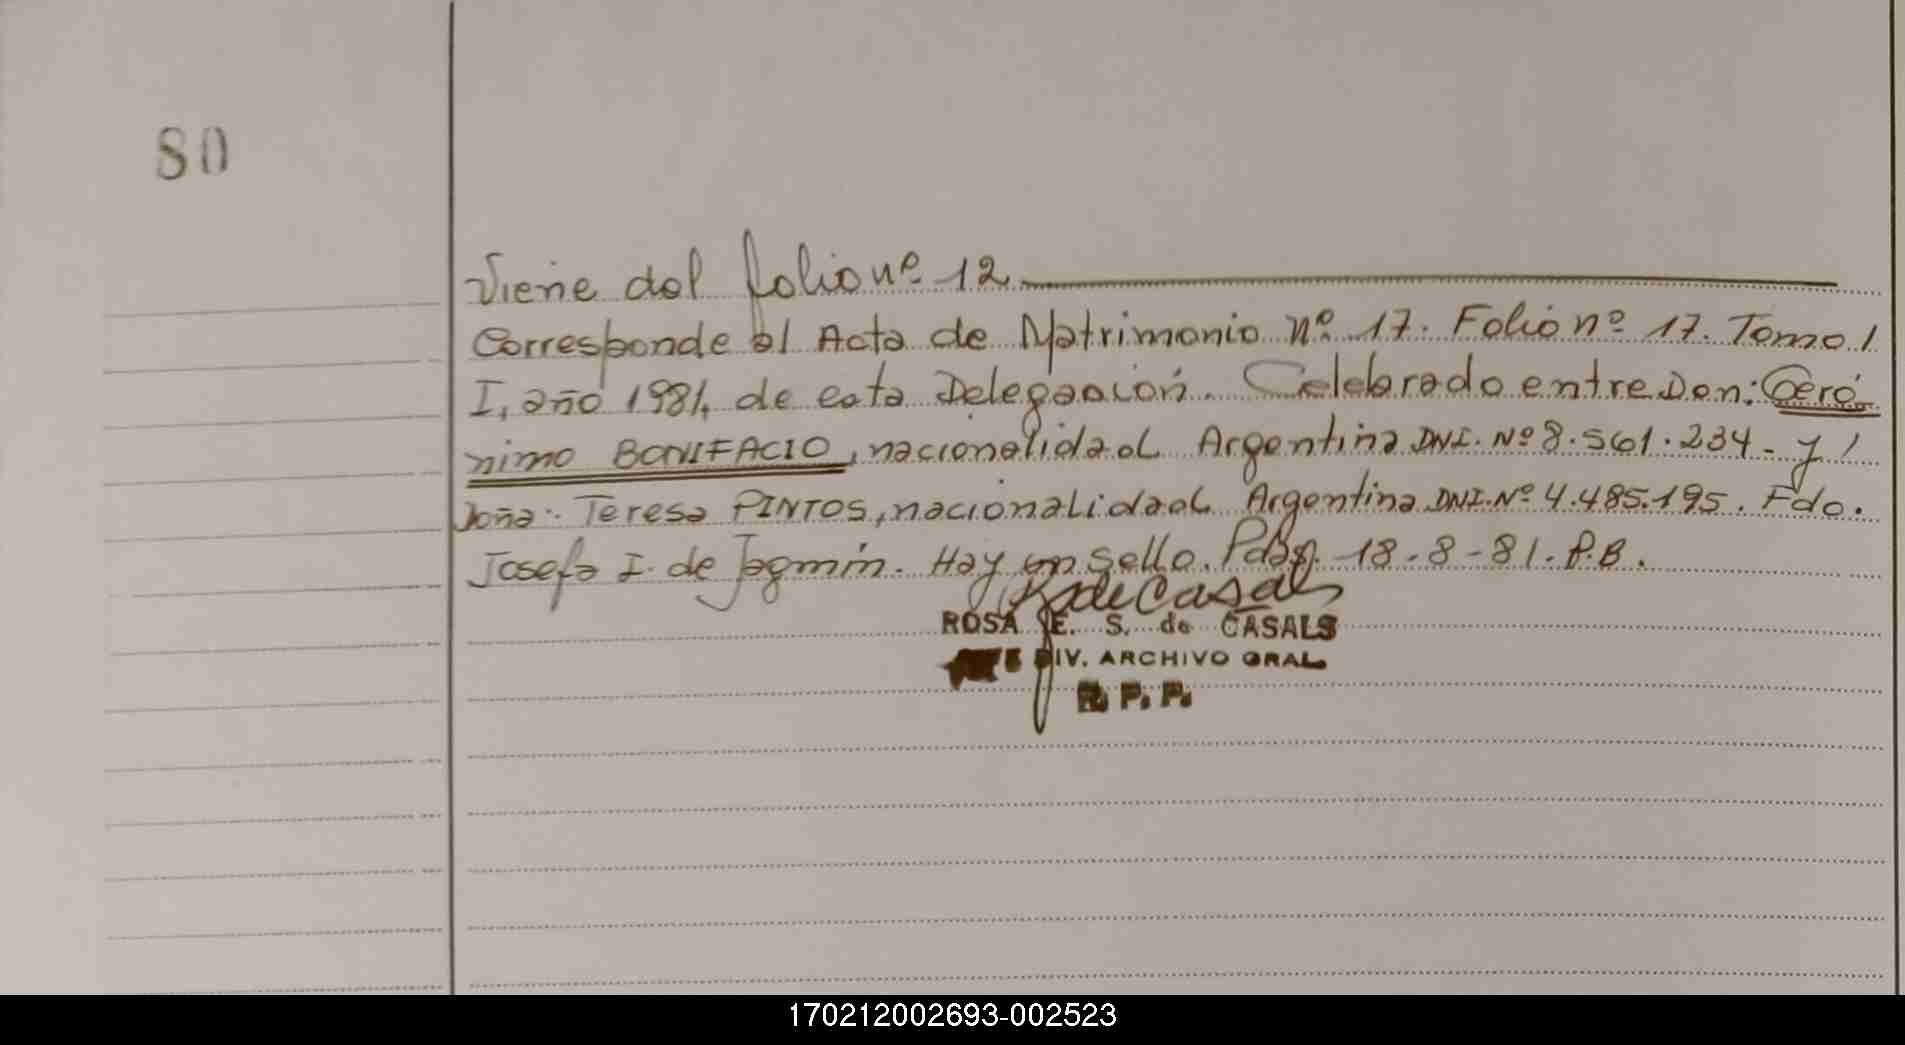 80
Viene del folio nº 12
Corresponde al Acta de Matrimonio Nº 17. Folio nº 17. Tomo /
I, año 1981, de esta Delegación. Celebrado entre Don: Geró
nimo BONIFACIO, nacionalidad Argentina DNI. Nº 8.561.234 - y /
Doña: Teresa PINTOS, nacionalidad Argentina DNI. Nº 4.485.195. Fdo.
Josefa I. de Jagmin. Hay un sello. Pdas. 18-8-81. P.B.
R de Casals
ROSA E. S. de CASALS
DIV. ARCHIVO GRAL.
R. P. P.
170212002693-002523